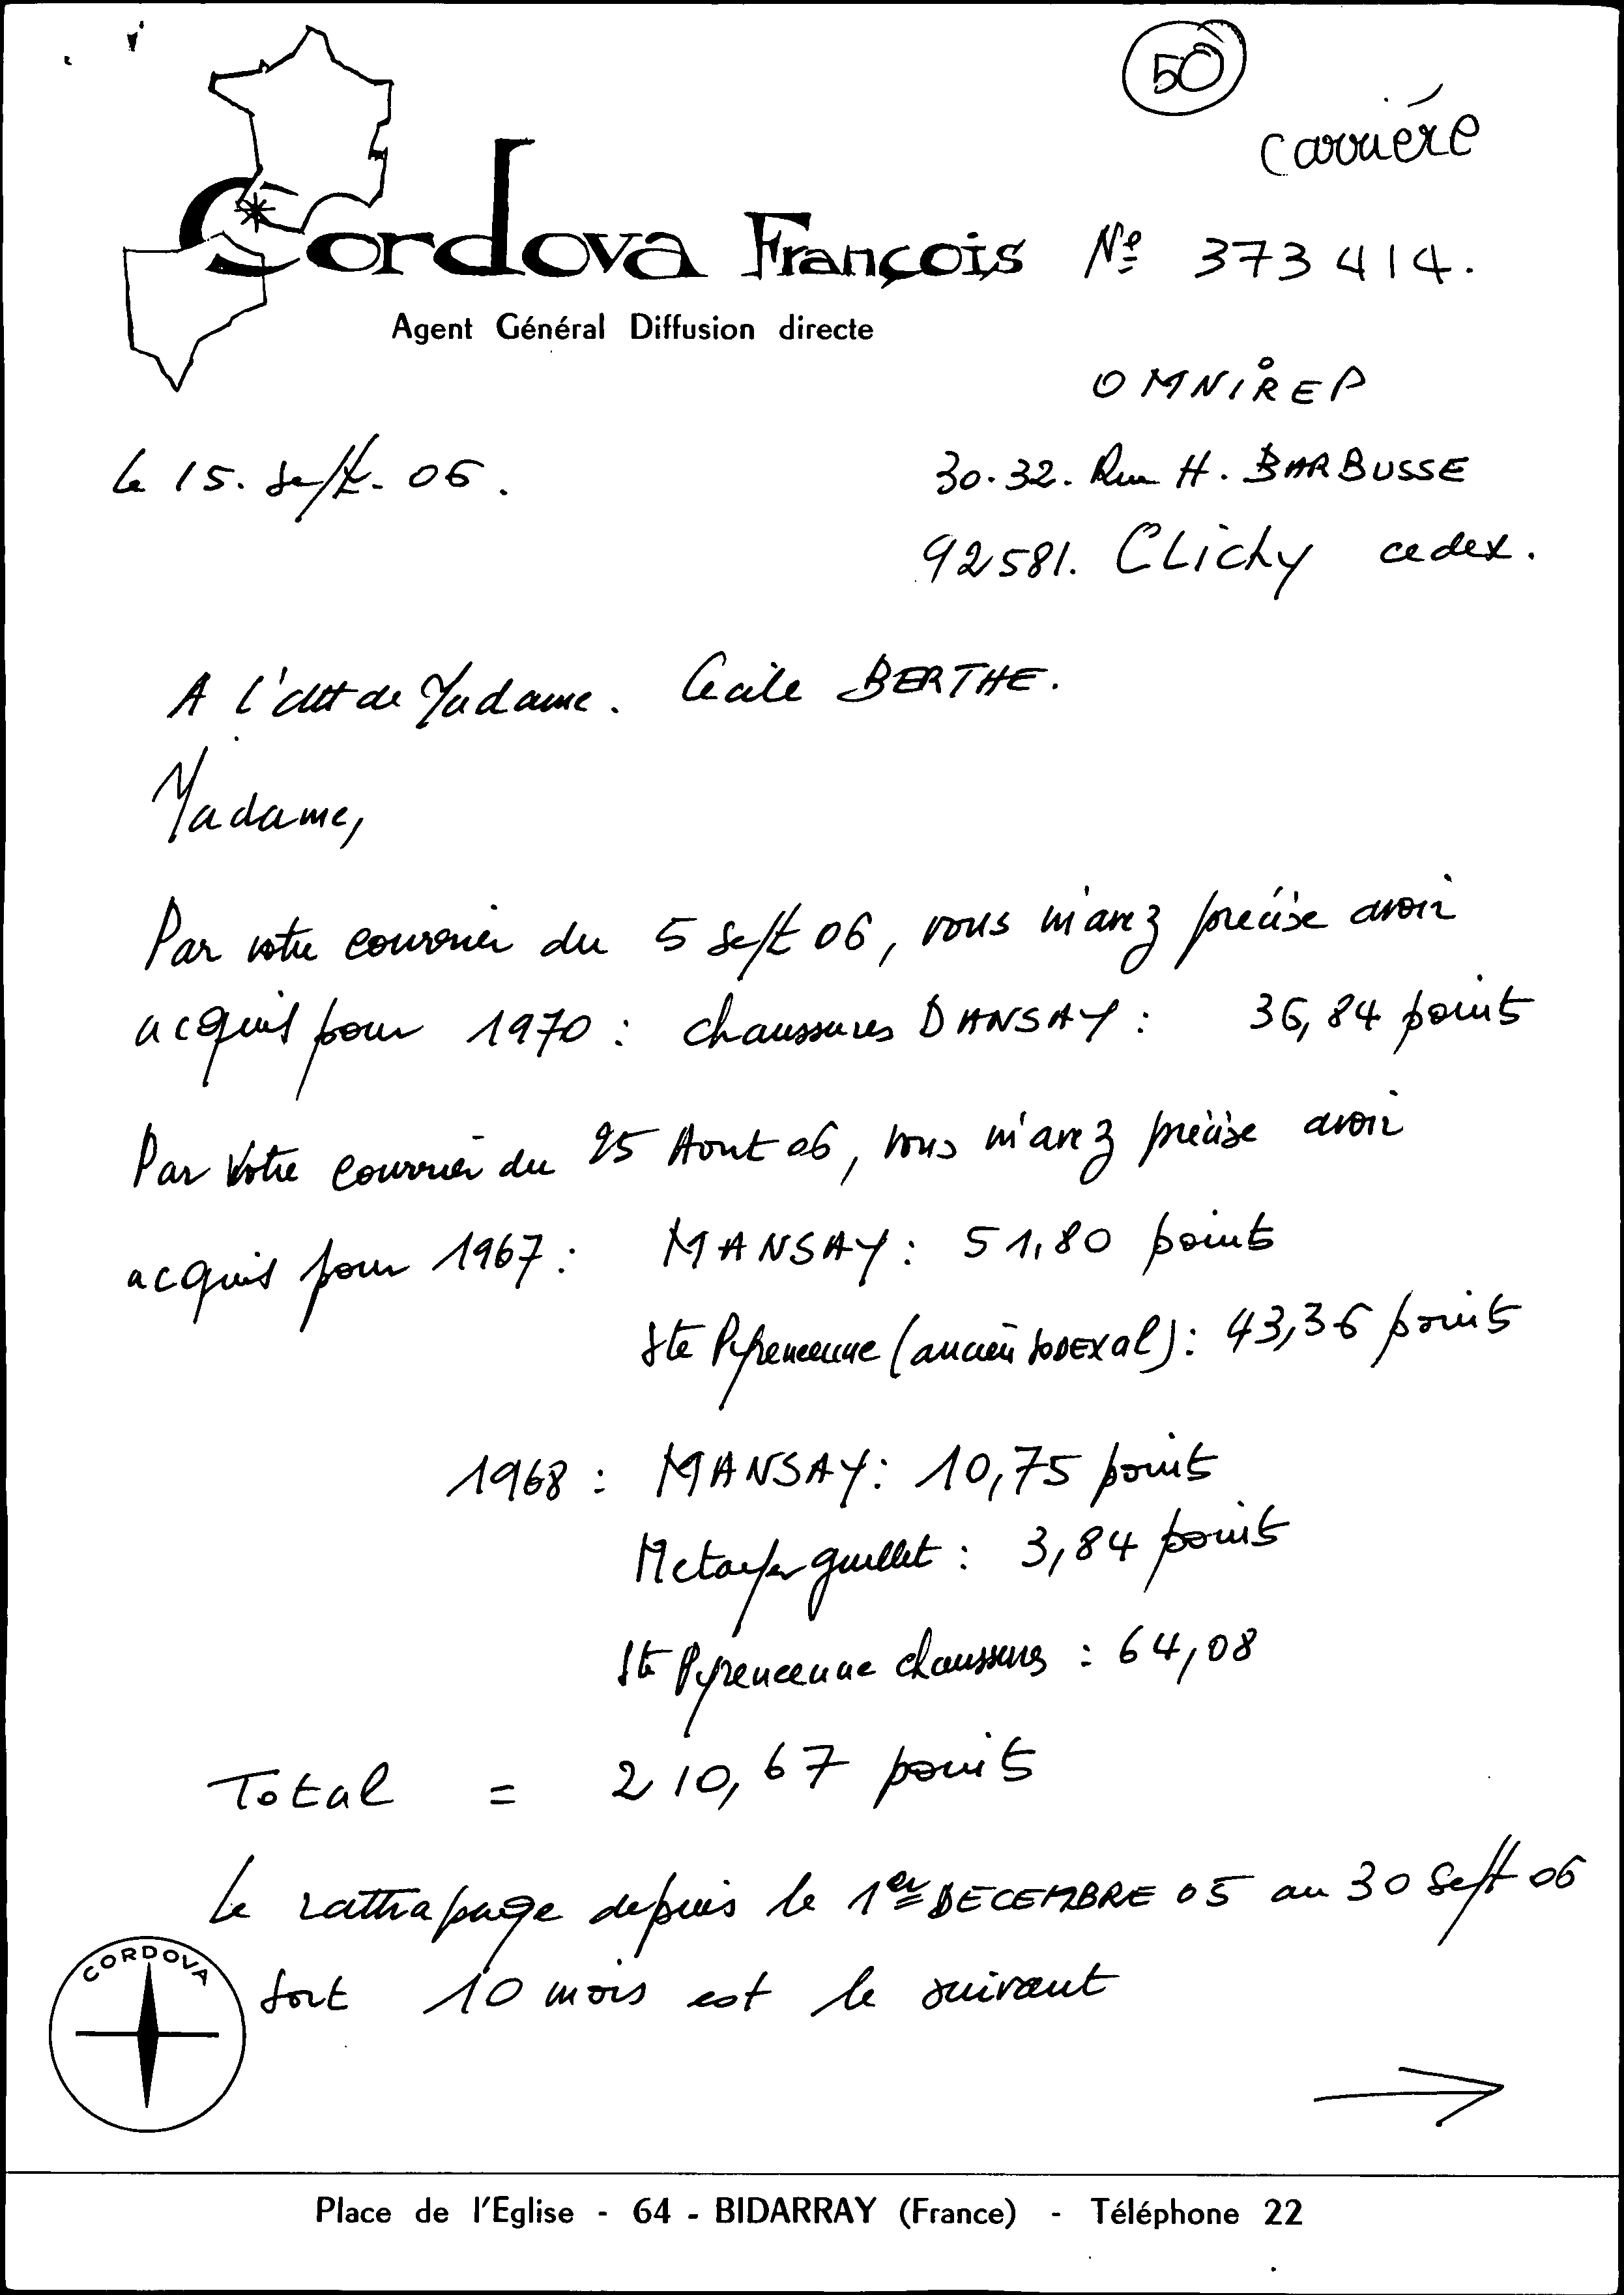 50
carrière
Cordova François Nº 373 414.
Agent Général Diffusion directe
OMNIREP
Le 15. Sept. 06.
30.32. Rue H. BARBUSSE
92581. CLichy cedex.
A l'att de Madame. Cecile BERTHE.
Madame,
Par votre courrier du 5 Sept 06, vous m'avez précisé avoir
acquis pour 1970 : chaussures DANSAY : 36,84 points
Par votre courrier du 25 Aout 06, vous m'avez précisé avoir
acquis pour 1967 : MANSAY : 51,80 points
Sté Pyreneenne (ancien SODEXAL) : 43,36 points
1968 : MANSAY : 10,75 points
Metayer guillet : 3,84 points
Sté Pyreneenne chaussures : 64,08
Total = 210,67 points
Le rattrapage depuis le 1er DECEMBRE 05 au 30 Sept 06
CORDOVA
Soit 10 mois est le suivant
Place de l'Eglise - 64 - BIDARRAY (France) - Téléphone 22